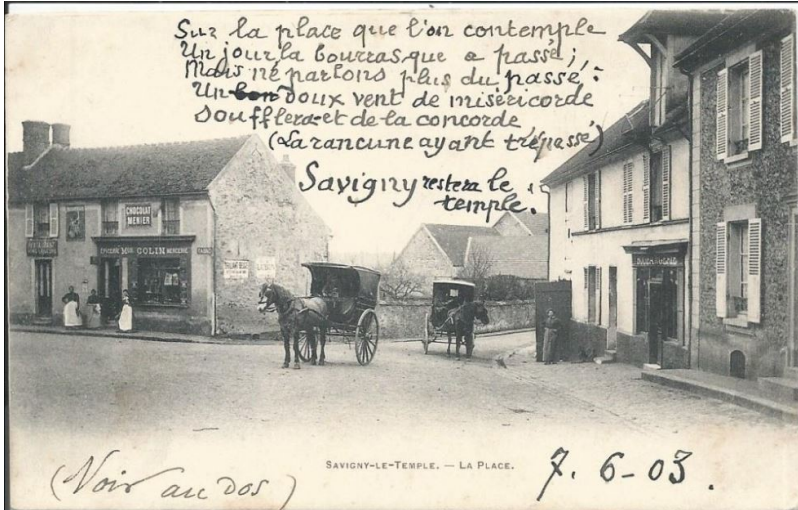 Sur la place que l'on contemple
Un jour la bourrasque a passé;
Mais ne parlons plus du passé:
Un bon doux vent de miséricorde
Soufflera et de la concorde
(La rancune ayant trépassé)
Savigny restera le
temple.
CHOCOLAT
MENIER
COLIN
SAVIGNY-LE-TEMPLE. — LA PLACE.
7. 6-03.
(Voir au dos)